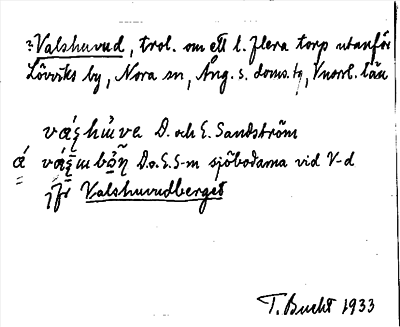 ? Valshuvud, trol. om ett l. flera torp utanför
Lövviks by, Nora sn, Ång. s. doms. tg, Vnorl. län
D. och E. Sandström
á D. o. E. S-m sjöbodarna vid V-d
jfr Valshuvudberget
T. Bucht 1933